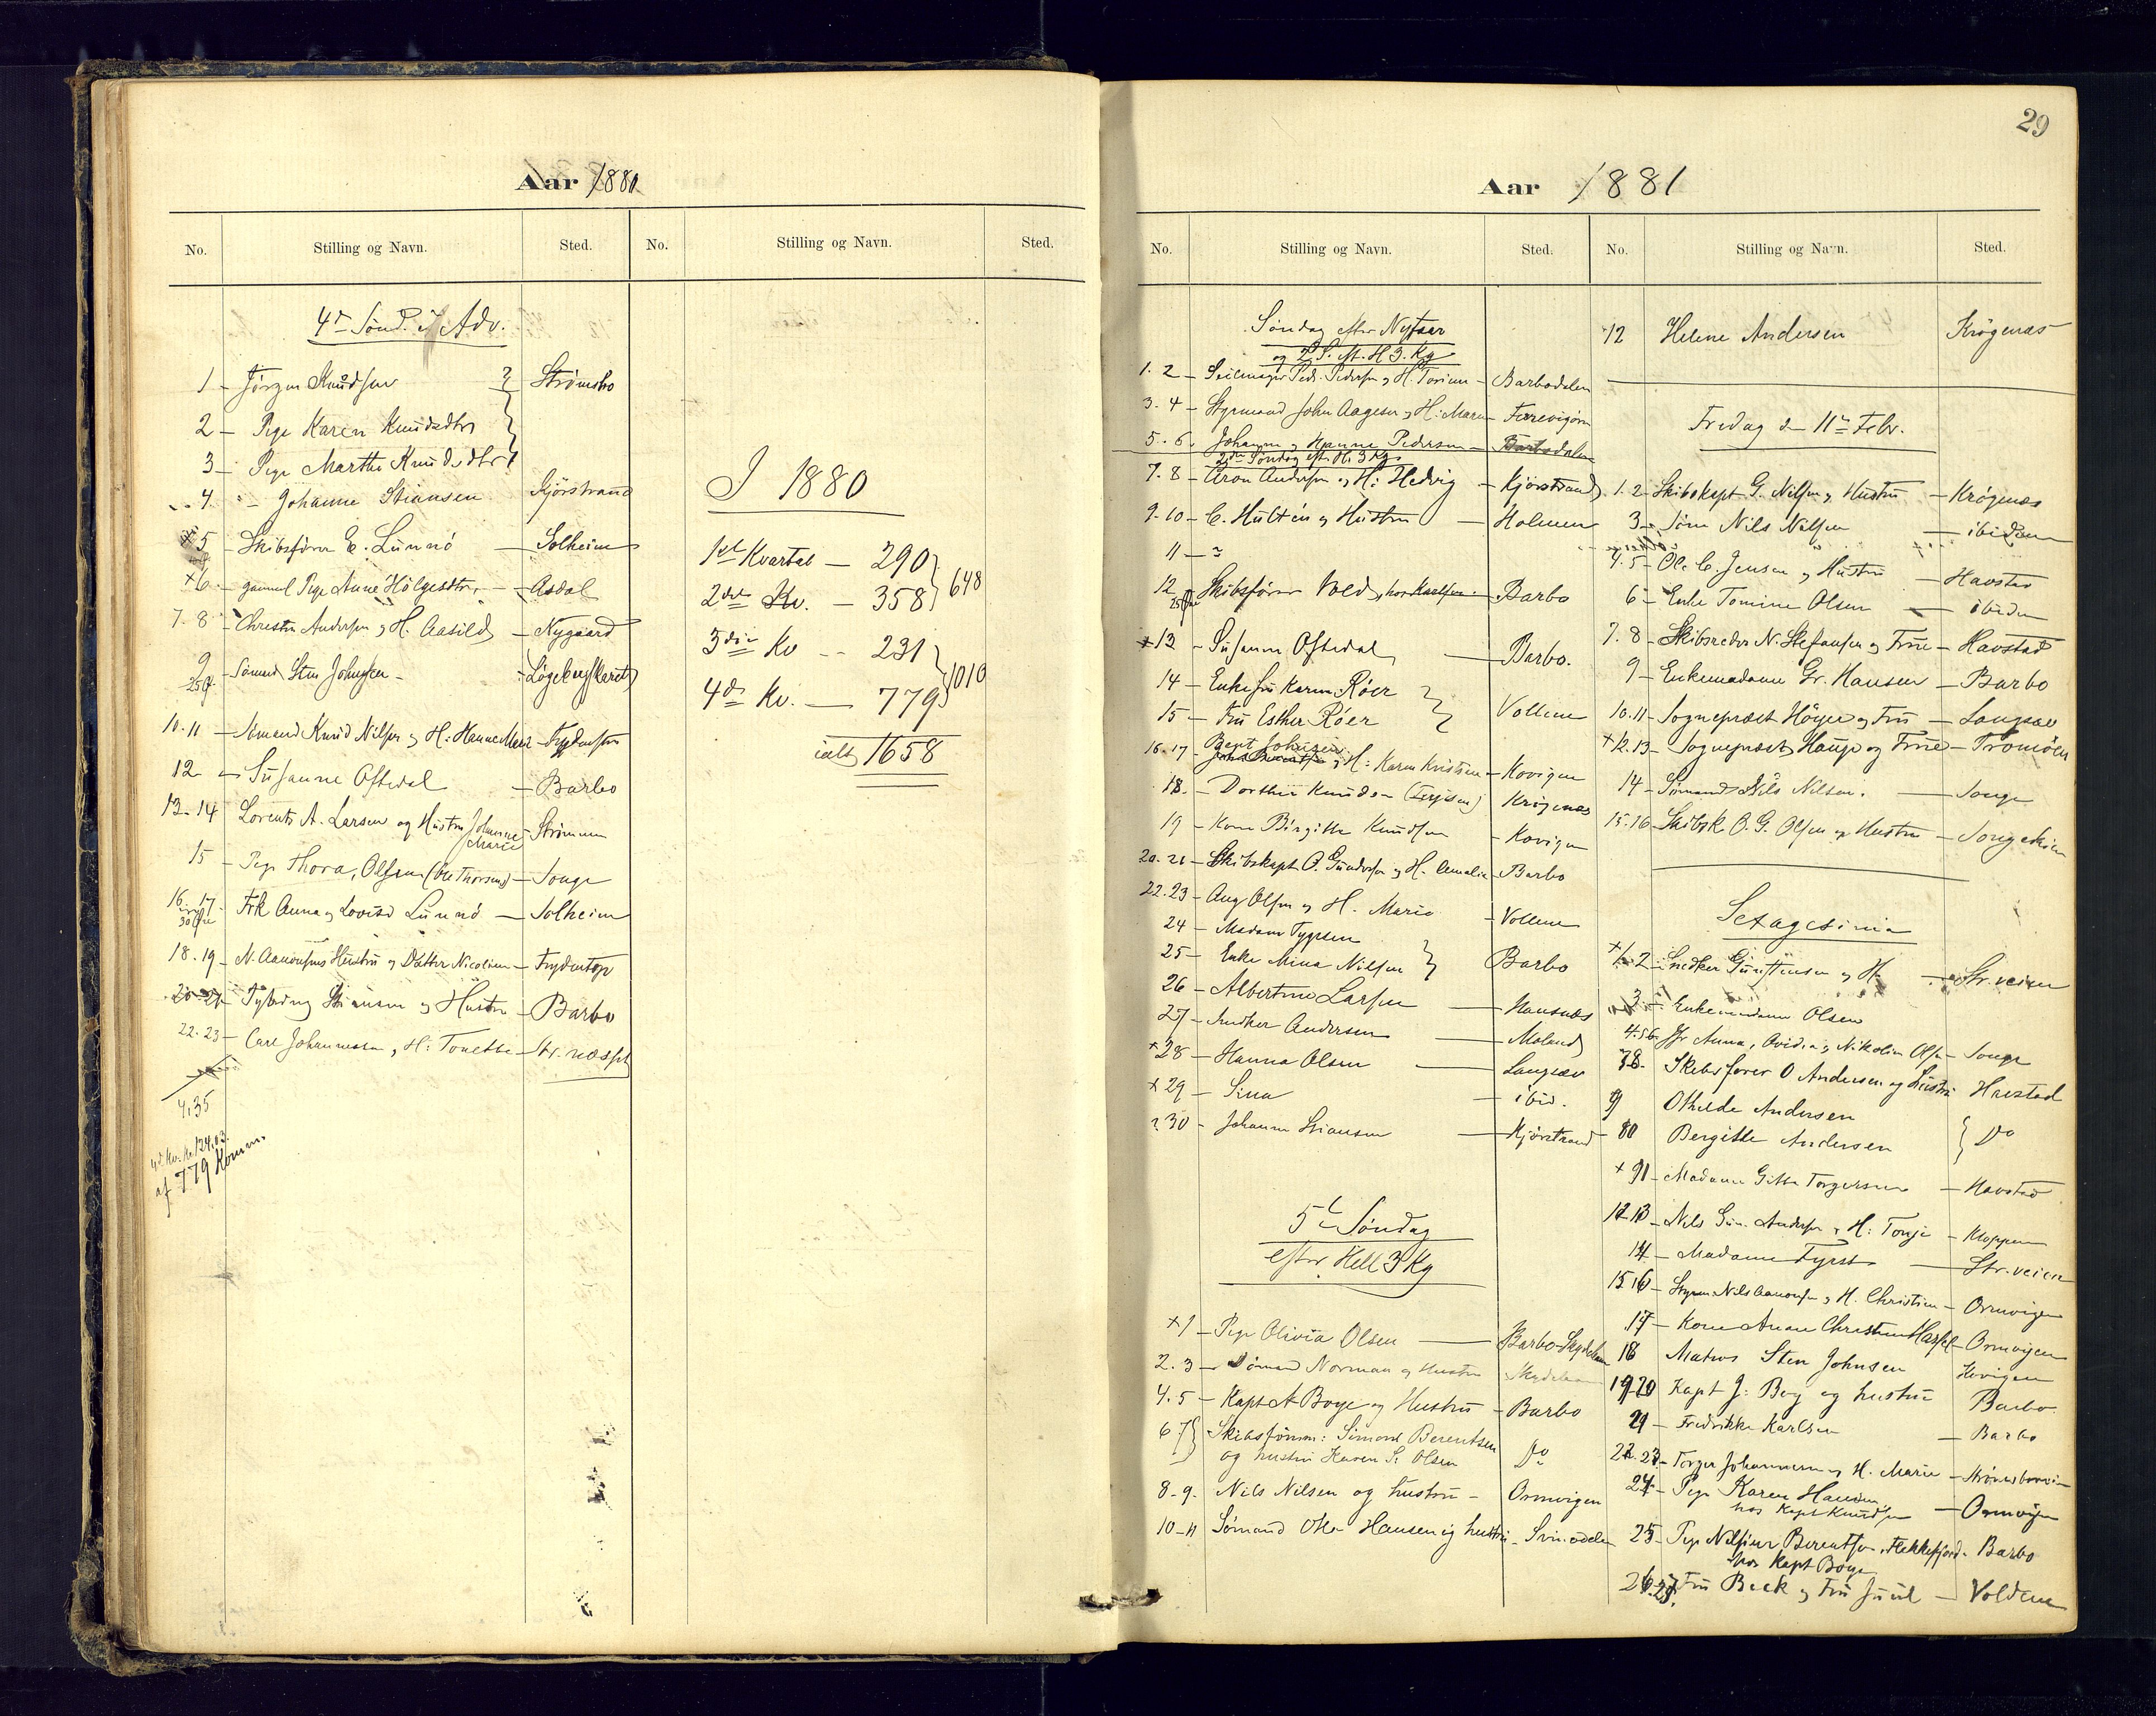 Aar 1880
No. Stilling og Navn. Sted. No. Stilling og Navn. Sted.
4de Sønd. i Adv.
1 - Jörgen Knudsen Strömsbo
2 - Pige Karen Knudsdtr
3 - Pige Marthe Knudsdtr
4 " - Johanne Stiansen Kjörstrand
5 - Skibsförer E. Lunnö - Solheim
+6 - gammel Pige Anne Holgesdtr. - Asdal
7. 8 - Christen Andersen og H. Aasild - Nygaard
9 - Sömand Sten Johnsen -
25
10. 11 - Sömand Knud Nilsen og H: Hanne
12 - Susanne Oftedal - Barbo
13-14 Lorents A. Larsen og Hustru Johanne Marie - Strömmen
15 - Pige Thora Olsen (Ole Thorsens) - Songe
16. 17 - Frk Anna og Lovise Lunnö - Solheim
30
18. 19 - N. Aanonsens Hustru og Datter Nicoline -
20-21 - Stiansen og Hustru - Barbo
22. 23 - Carl Johannessen og H: Tonette
4,35
4de Kv. Kr 124,03.
af 779 Komm.
I 1880
1ste Kvartal - 290
2det Kv. - 358 } 648
3die Kv - 231
4de Kv. - 779 } 1010
ialt 1658
29
Aar 1881
No. Stilling og Navn. Sted. No. Stilling og Navn. Sted.
Söndag efter Nytaar
og 2 S. eft. H 3. Kg
1. 2 - Seilmager Peder Pedersen og H. - Barbodalen
3. 4 - Styrmand John Aagesen og H: Maren -
5. 6. Johannes og Hanne Pedersen - Barbodalen
2den Söndag eft. H. 3 Kg
7. 8 - Aron Andersen og H: Hedvig - Kjörstrand
9. 10 - C. Hultén og Hustru - Holmen
11 - ?
12 - Skibsförer Vold, - Barbo
25
+13 - Susanne Oftedal - Barbo.
14 - Enkefru Karen Röer
15 - Fru Esther Röer Vollene
16. 17 - Bernt Johnsen og H: Karen Kristine - Kovigen
18. - Dorthea Knudsen Krögenæs
19 - Kone Birgitte Knudsen - Kovigen
20. 21 - Skibskapt O. Gundersen og H. Amalie - Barbo
22. 23 - Aug Olsen og H. Marie - Vollene
24 - Madam
25 - Enke Mina Nilsen Barbo
26 - Albertine Larsen
27 - Snedker Andersen - Moland
+28 - Hanna Olsen - Langsæv
+29 - Sina - ibid.
30 - Johanne Stiansen - Kjörstrand
5te Söndag
efter Hell 3 Kg
+1 - Pige Olivia Olsen - Barbo
2. 3 - Sömand Norman og Hustru
4. 5 - Kapt A Boye og Hustru - Barbo
6 7 Skibsförer: Simon Berentsen
og hustru Karen S. Olsen Do
8-9. Nils Nilsen og hustru - Ormvigen
10-11 Sömand Ole Hansen og hustru -
12 Helene Andersen Krögenæs
Fredag d 11te Febr.
1. 2 - Skibskapt G. Nilsen og Hustru - Krögenæs
3 - Sön Nils Nilsen - ibidem
4. 5 - Ole C. Jensen og Hustru - Havstad
6 - Enke Tomine Olsen - ibidem
7. 8 - Skibsreder N. Stefansen og Frue - Havstad
9 - Enkemadame Gr. Hansen - Barbo
10. 11 - Sognepræst Höyer og Fru - Langsæv
+12. 13 - Sogneprest Hauge og Frue - Tromöen
14 - Sömand Nils Nilsen. - Songe
15. 16 - Skibsk O. G. Olsen og Hustru -
Sexagesima
+1. 2 - Snedker og H - Str. veien
3 - Enkemadame Olsen
4. 5 6 - Anna, Ovidia og Nikoline Olsen - Songe
7 8 - Skibsförer O Andersen og Hustru Havstad
9 Othilde Andersen
10 Bergitte Andersen Do
+11 - Madame Gitte Torgersen - Havstad
12 13 - Nils Andersen og H: Tonje - Kloppen
14 - Madame - Str. veien
15 16 - Styrm. Nils Aanonsen og H. Christine - Ormvigen
17 - Kone Anne Christine - Ormvigen
18 Matros Sten Johnsen
19 20 Kapt J: Bey og hustru Barbo
21 - Fredrikke Karlsen - Barbo
22. 23 - Torger Johannesen og H. Marie -
24 - Pige Karen Hansen - Ormvigen
hos Kapt Knudsen
25 - Pige Berentsen, Flekkefjord - Barbo
hos Kapt Boye
26. 27. Fru Beck og Fru Juul - Voldene